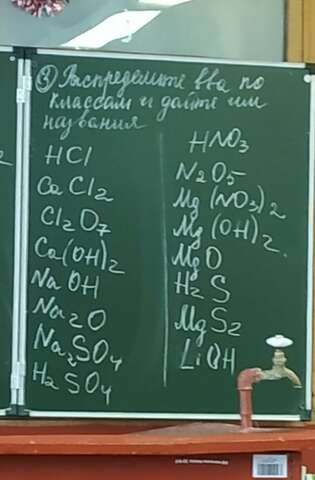 ③ Распределите в-ва по
классам и дайте им
названия
HCl
CaCl2
Cl2O7
Ca(OH)2
NaOH
Na2O
Na2SO4
H2SO4
HNO3
N2O5
Mg(NO3)2
Mg(OH)2.
MgO
H2S
MgS2
LiOH